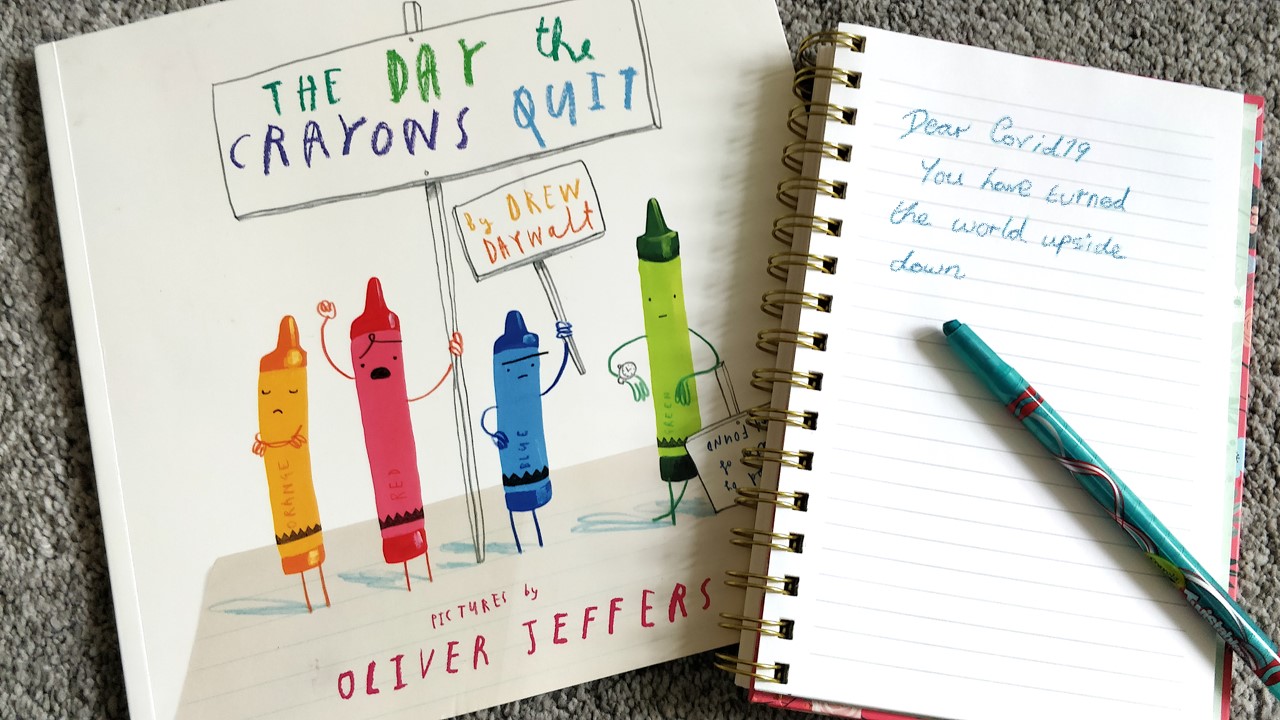 THE DAY the
CRAYONS QUIT
By DREW
DAYWalt
ORANGE
RED
BLUE
GREEN
FOUND
PICTURES by
OLIVER JEFFERS
Dear Covid19
You have turned
the world upside
down